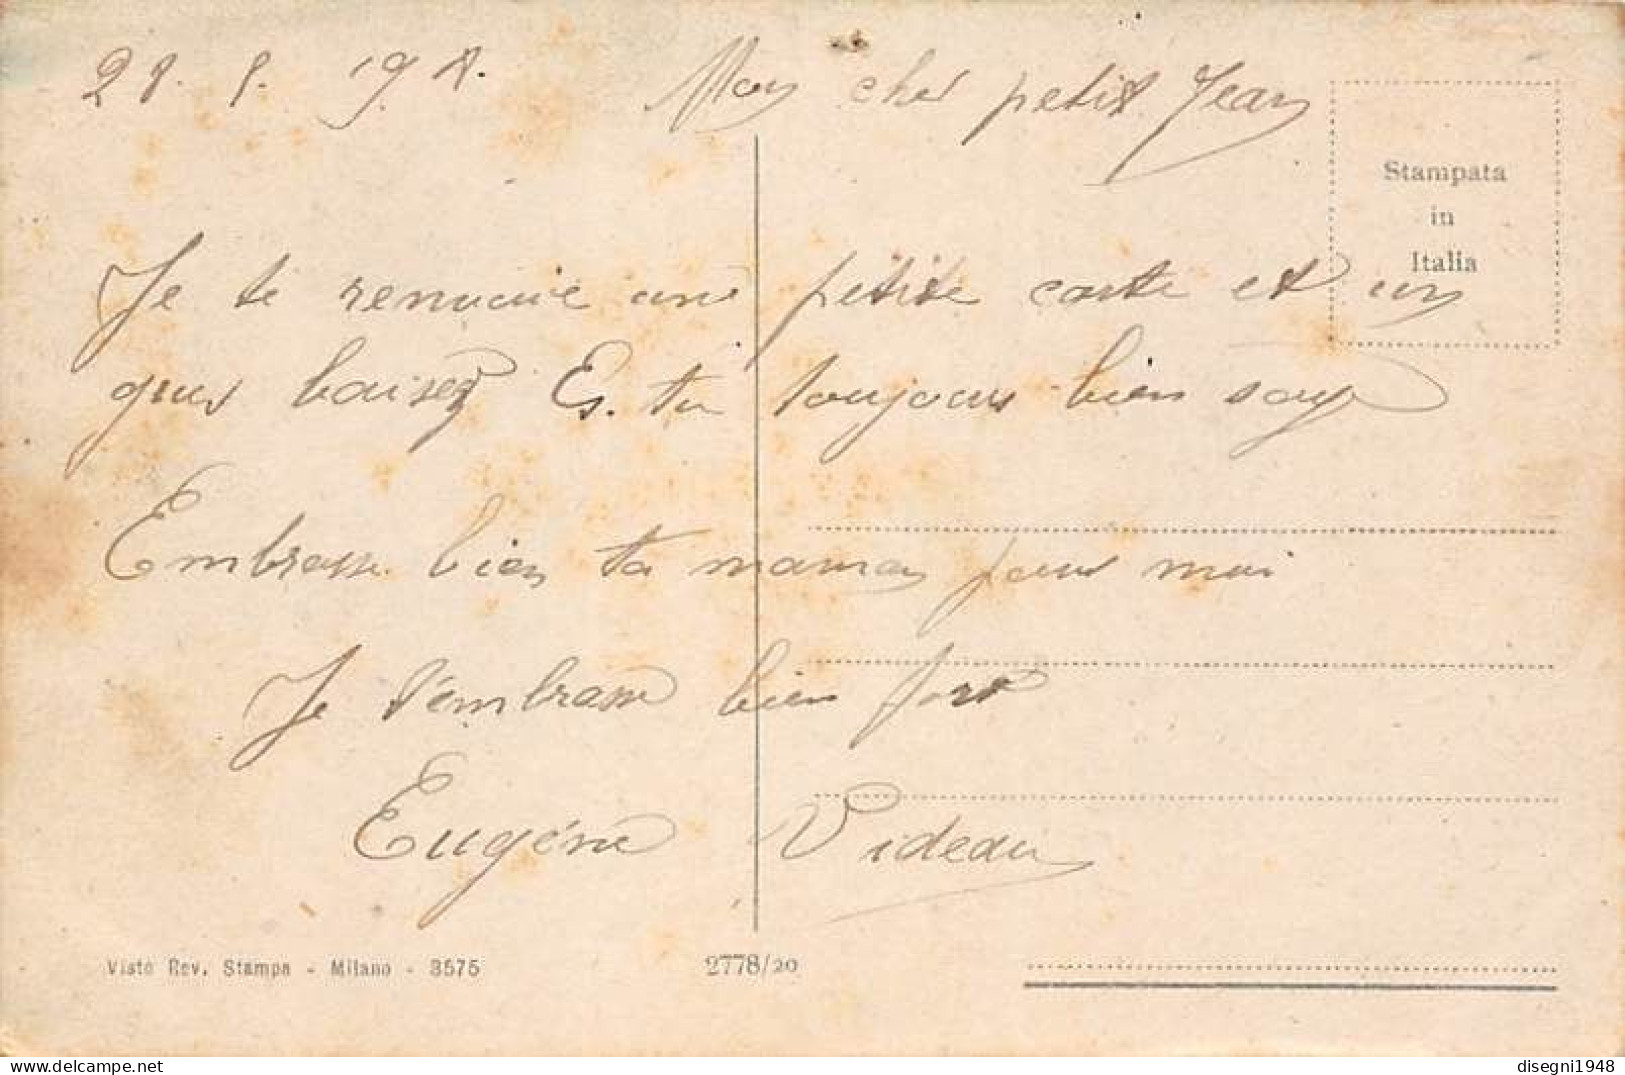 28. 8. 198. Mon cher petit Jean
Stampata
in
Italia
Je te renvoie une petite carte et un
gros baiser Es. tu toujours bien sage
Embrasse bien ta maman pour moi
Je t'embrasse bien fort
Eugéne Videau
Visto Rev. Stampa - Milano - 3575
2778/20
disegni1948